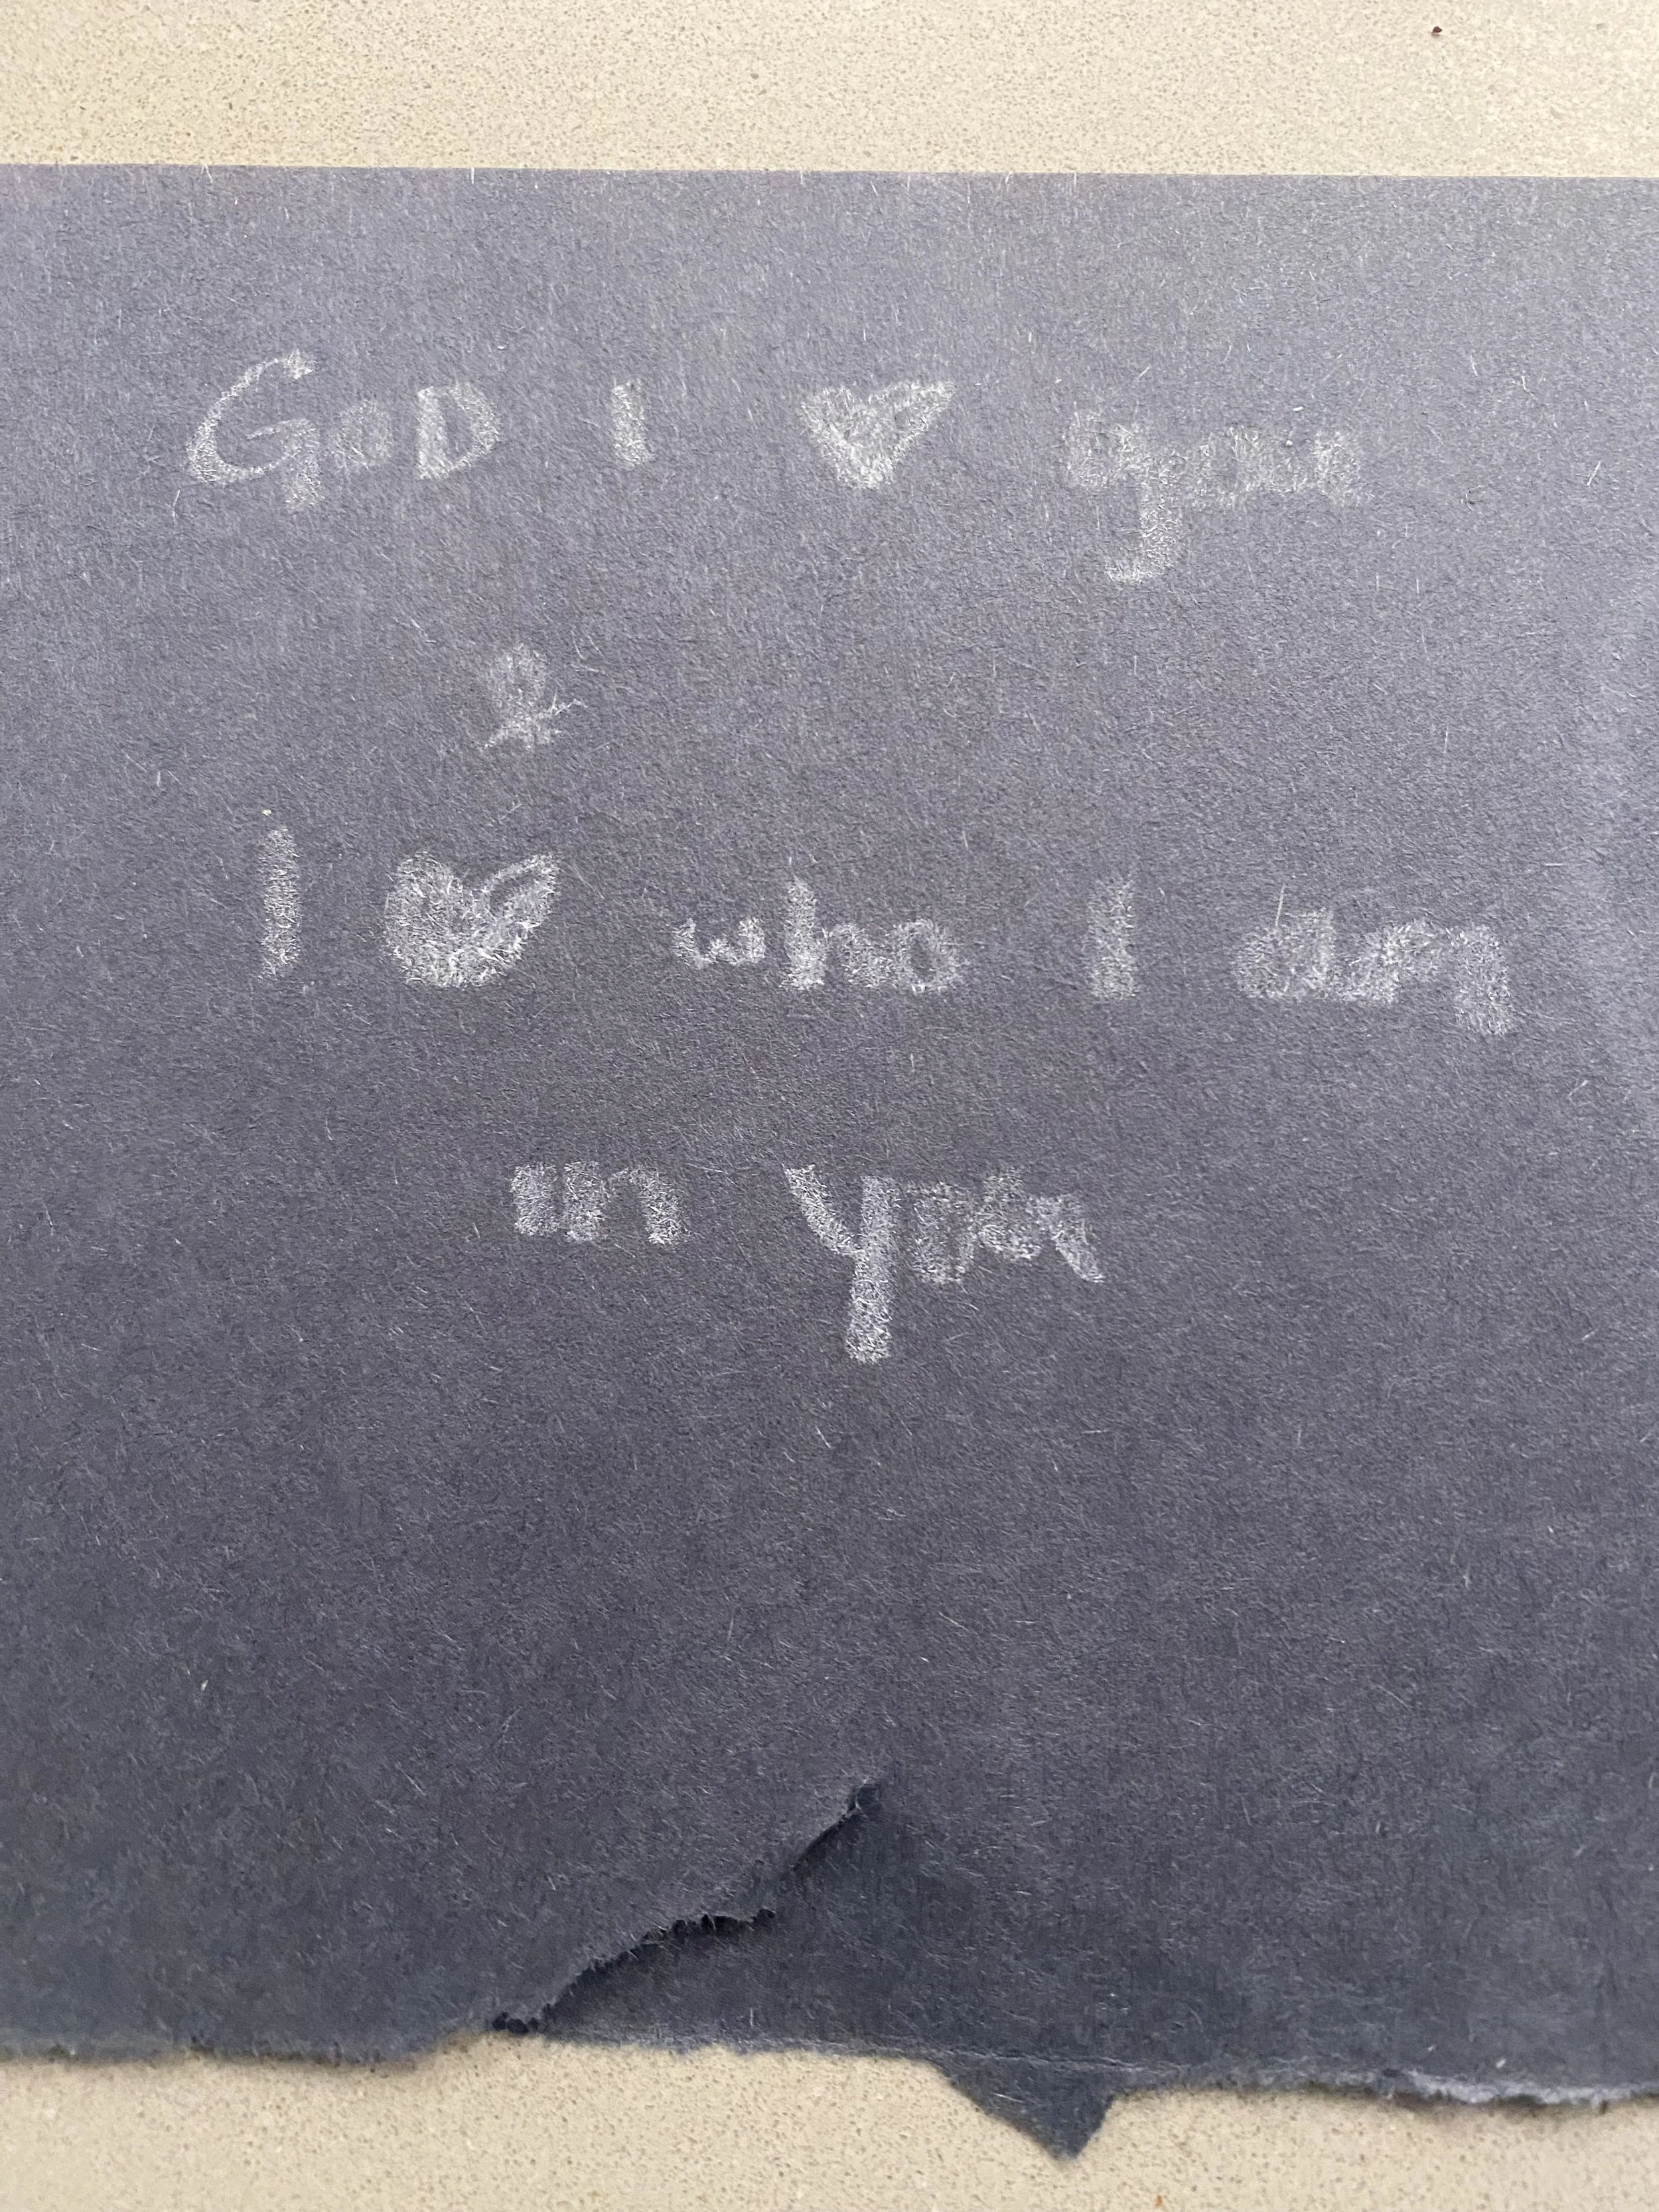 GOD I ♥ you
&
I ♥ who I am
in you